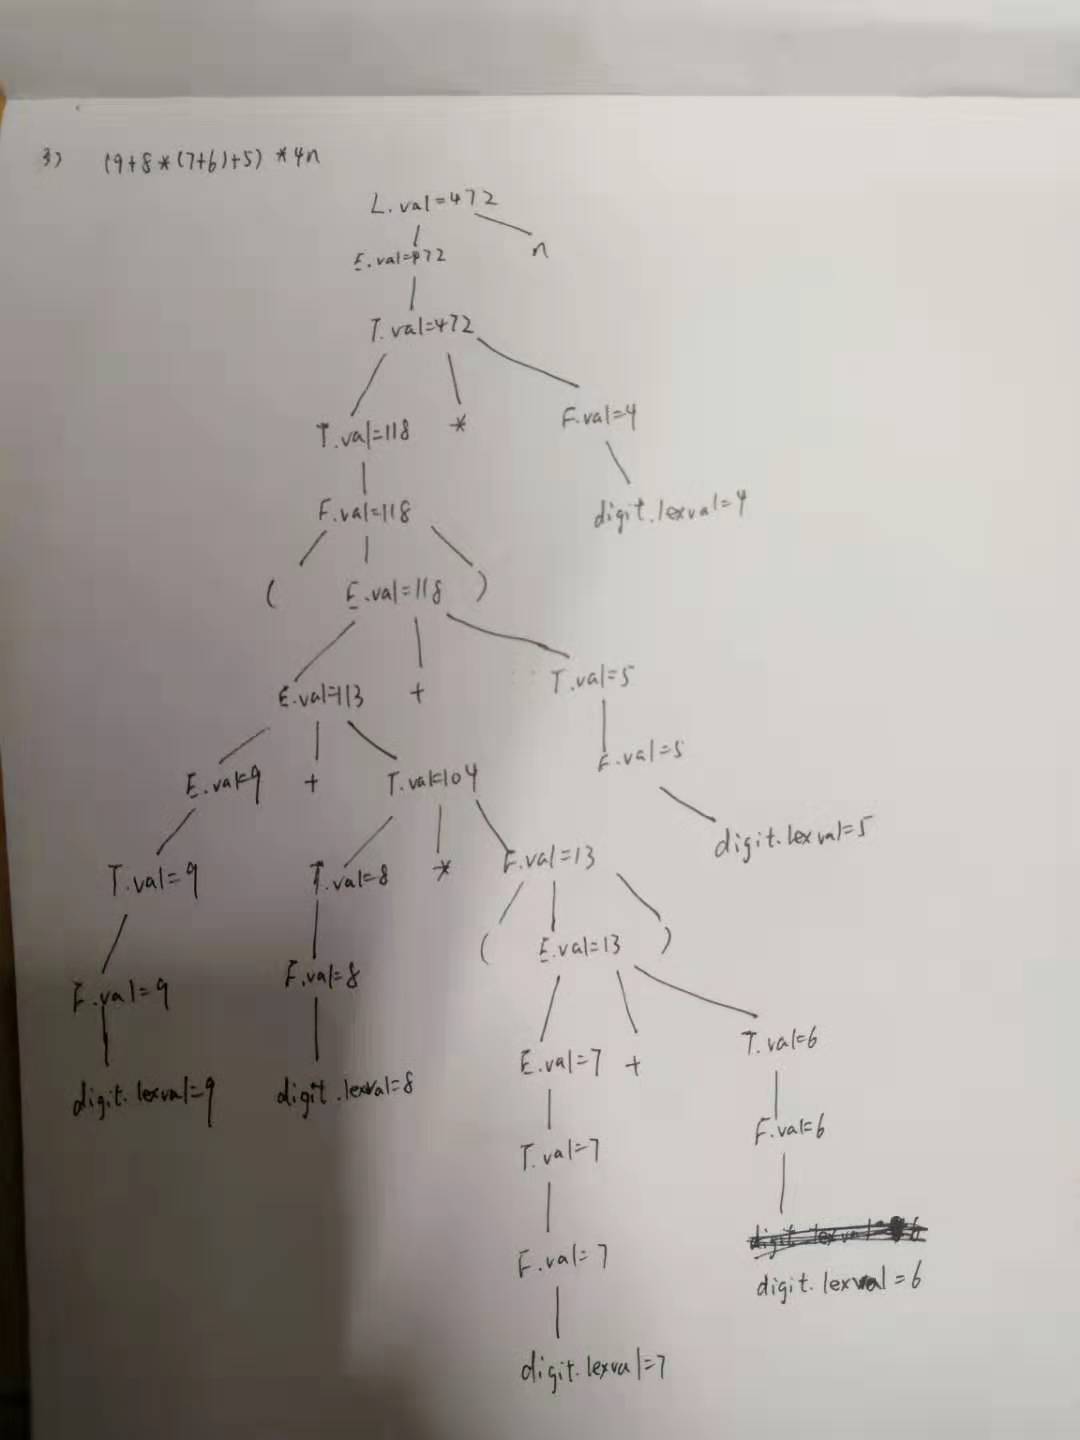 3) (9+8*(7+6)+5) *4n
L.val=472
E.val=472 n
T.val=472
T.val=118 * F.val=4
F.val=118 digit.lexval=4
( E.val=118 )
E.val=113 + T.val=5
E.val=9 + T.val=104 F.val=5
T.val=9 T.val=8 * F.val=13 digit.lexval=5
( E.val=13 )
F.val=9 F.val=8
E.val=7 + T.val=6
digit.lexval=9 digit.lexval=8
T.val=7 F.val=6
F.val=7 digit.lexval=6
digit.lexval=6
digit.lexval=7